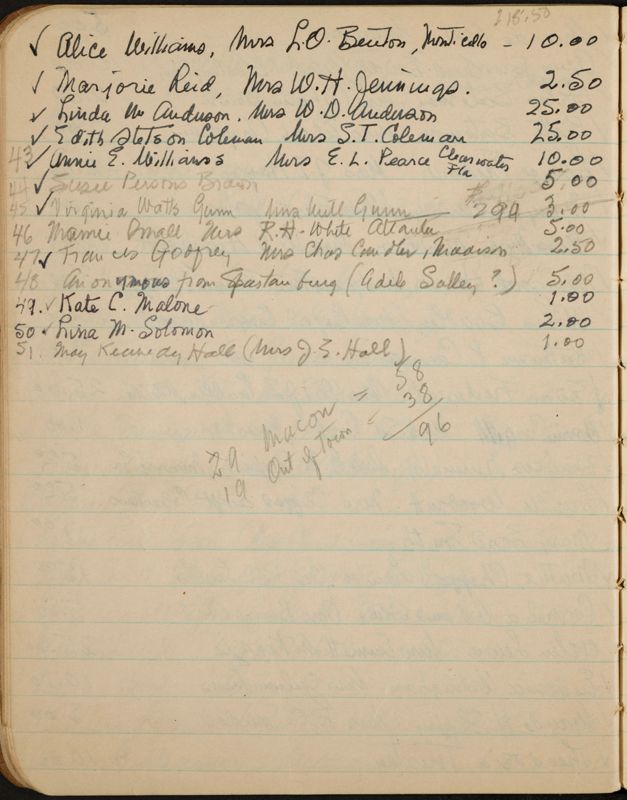 218.50
✓ Alice Williams, Mrs L.O. Benton, Monticello - 10.00
✓ Marjorie Reid, Mrs W.H. Jennings. 2.50
✓ Linda M Anderson, Mrs W.D. Anderson 25.00
✓ Edith Stetson Coleman Mrs S.T. Coleman 25.00
43 ✓ Annie E. Williams Mrs E.L. Pearce Clearwater Fla 10.00
44 ✓ Susie Persons Brown 5.00
45 ✓ Virginia Watts Gunn Mrs Will Gunn 299 3.00
46 Mamie Small Mrs R.H. White Atlanta 5.00
47 ✓ Frances Godfrey Mrs Chas Candler, Madison 2.50
48 Anonymous from Spartanburg (Adele Salley?) 5.00
49. ✓ Kate C. Malone 1.00
50 ✓ Lina M. Solomon 2.00
51. May Kennedy Hall (Mrs J.E. Hall) 1.00
29 Macon = 58
19 Out of Town = 38
96